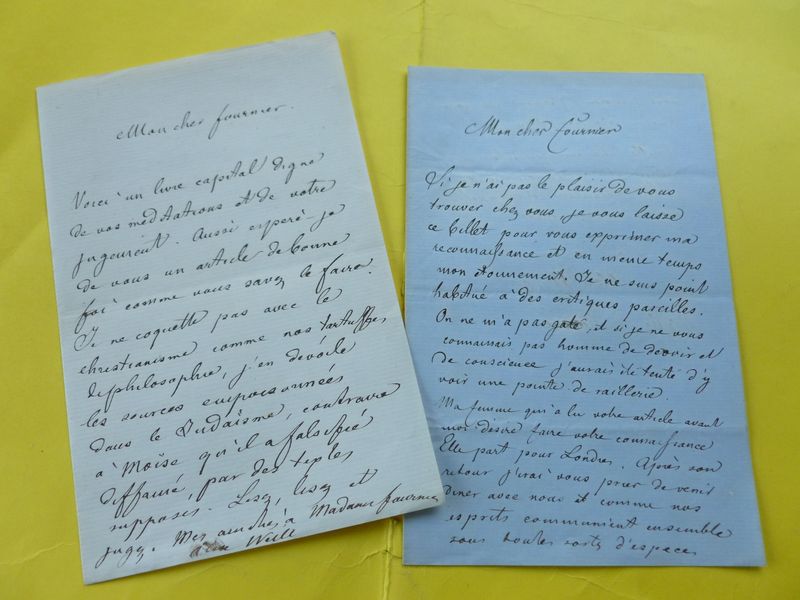 Mon cher Fournier.
Voici un livre capital digne
de vos méditations et de votre
jugement. Aussi esperè-je
de vous un article de bonne
foi comme vous savez le faire.
Je ne coquette pas avec le
christianisme comme nos tartuffes
de philosophie, j'en dévoile
les sources empoisonnées
dans le Judaïsme, contraire
à Moïse qu'il a falsifié
diffamé, par des textes
supposés. Lisez, lisez et
jugez. Mes amitiés à Madame Fournier
Weill
Mon cher Fournier
Si je n'ai pas le plaisir de vous
trouver chez vous je vous laisse
ce billet pour vous exprimer ma
reconnaissance et en même temps
mon étonnement. Je ne suis point
habitué à des critiques pareilles.
On ne m'a pas gaté, et si je ne vous
connaissais pas homme de devoir et
de conscience j'aurais été tenté d'y
voir une pointe de raillerie.
Ma femme qui a lu votre article avant
moi désire faire votre connaissance
Elle part pour Londres. Après son
retour j'irai vous prier de venir
diner avec nous et comme nos
esprits communient ensemble
sous toutes sortes d'espèces